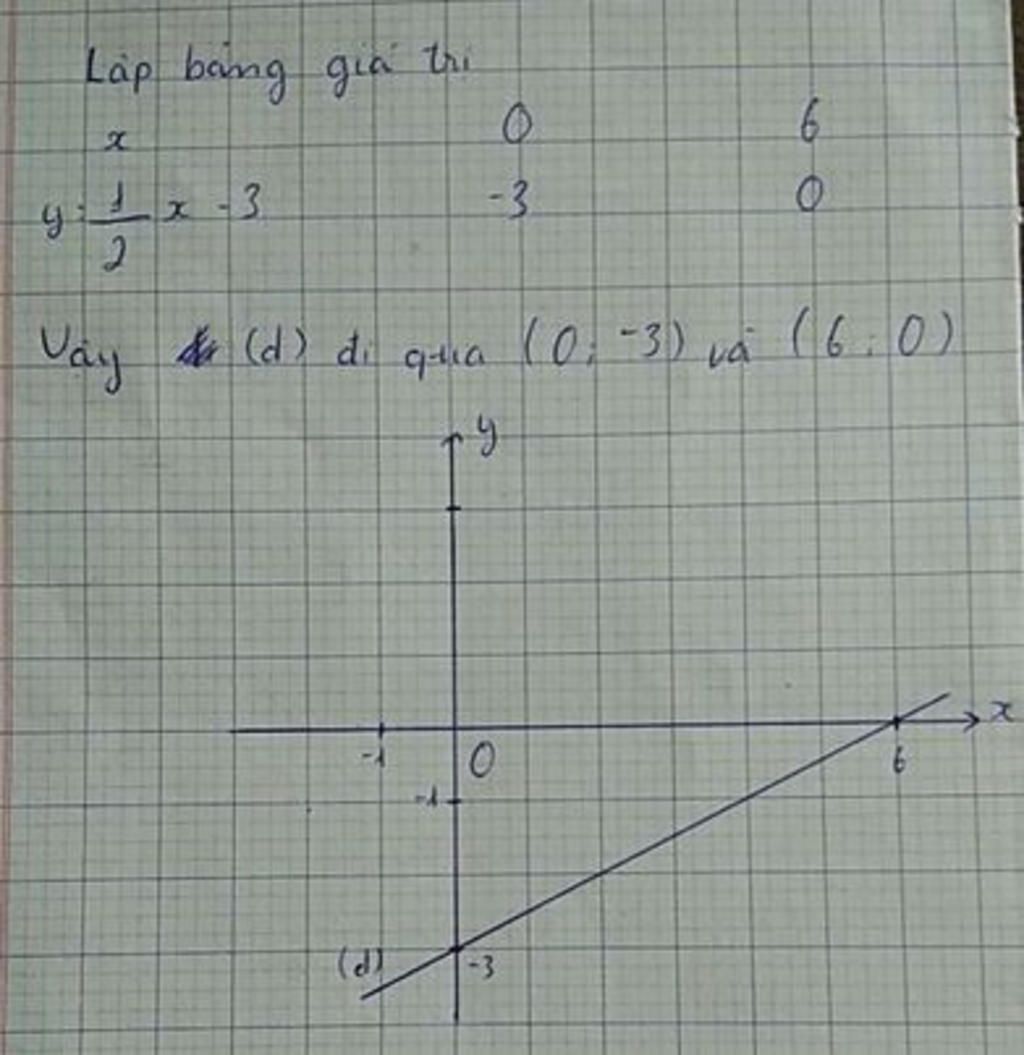 Lập bảng giá trị
x 0 6
y = 1/2 x - 3 -3 0
Vậy (d) đi qua (0; -3) và (6; 0)
y
x
-1 O 6
-1
(d) -3